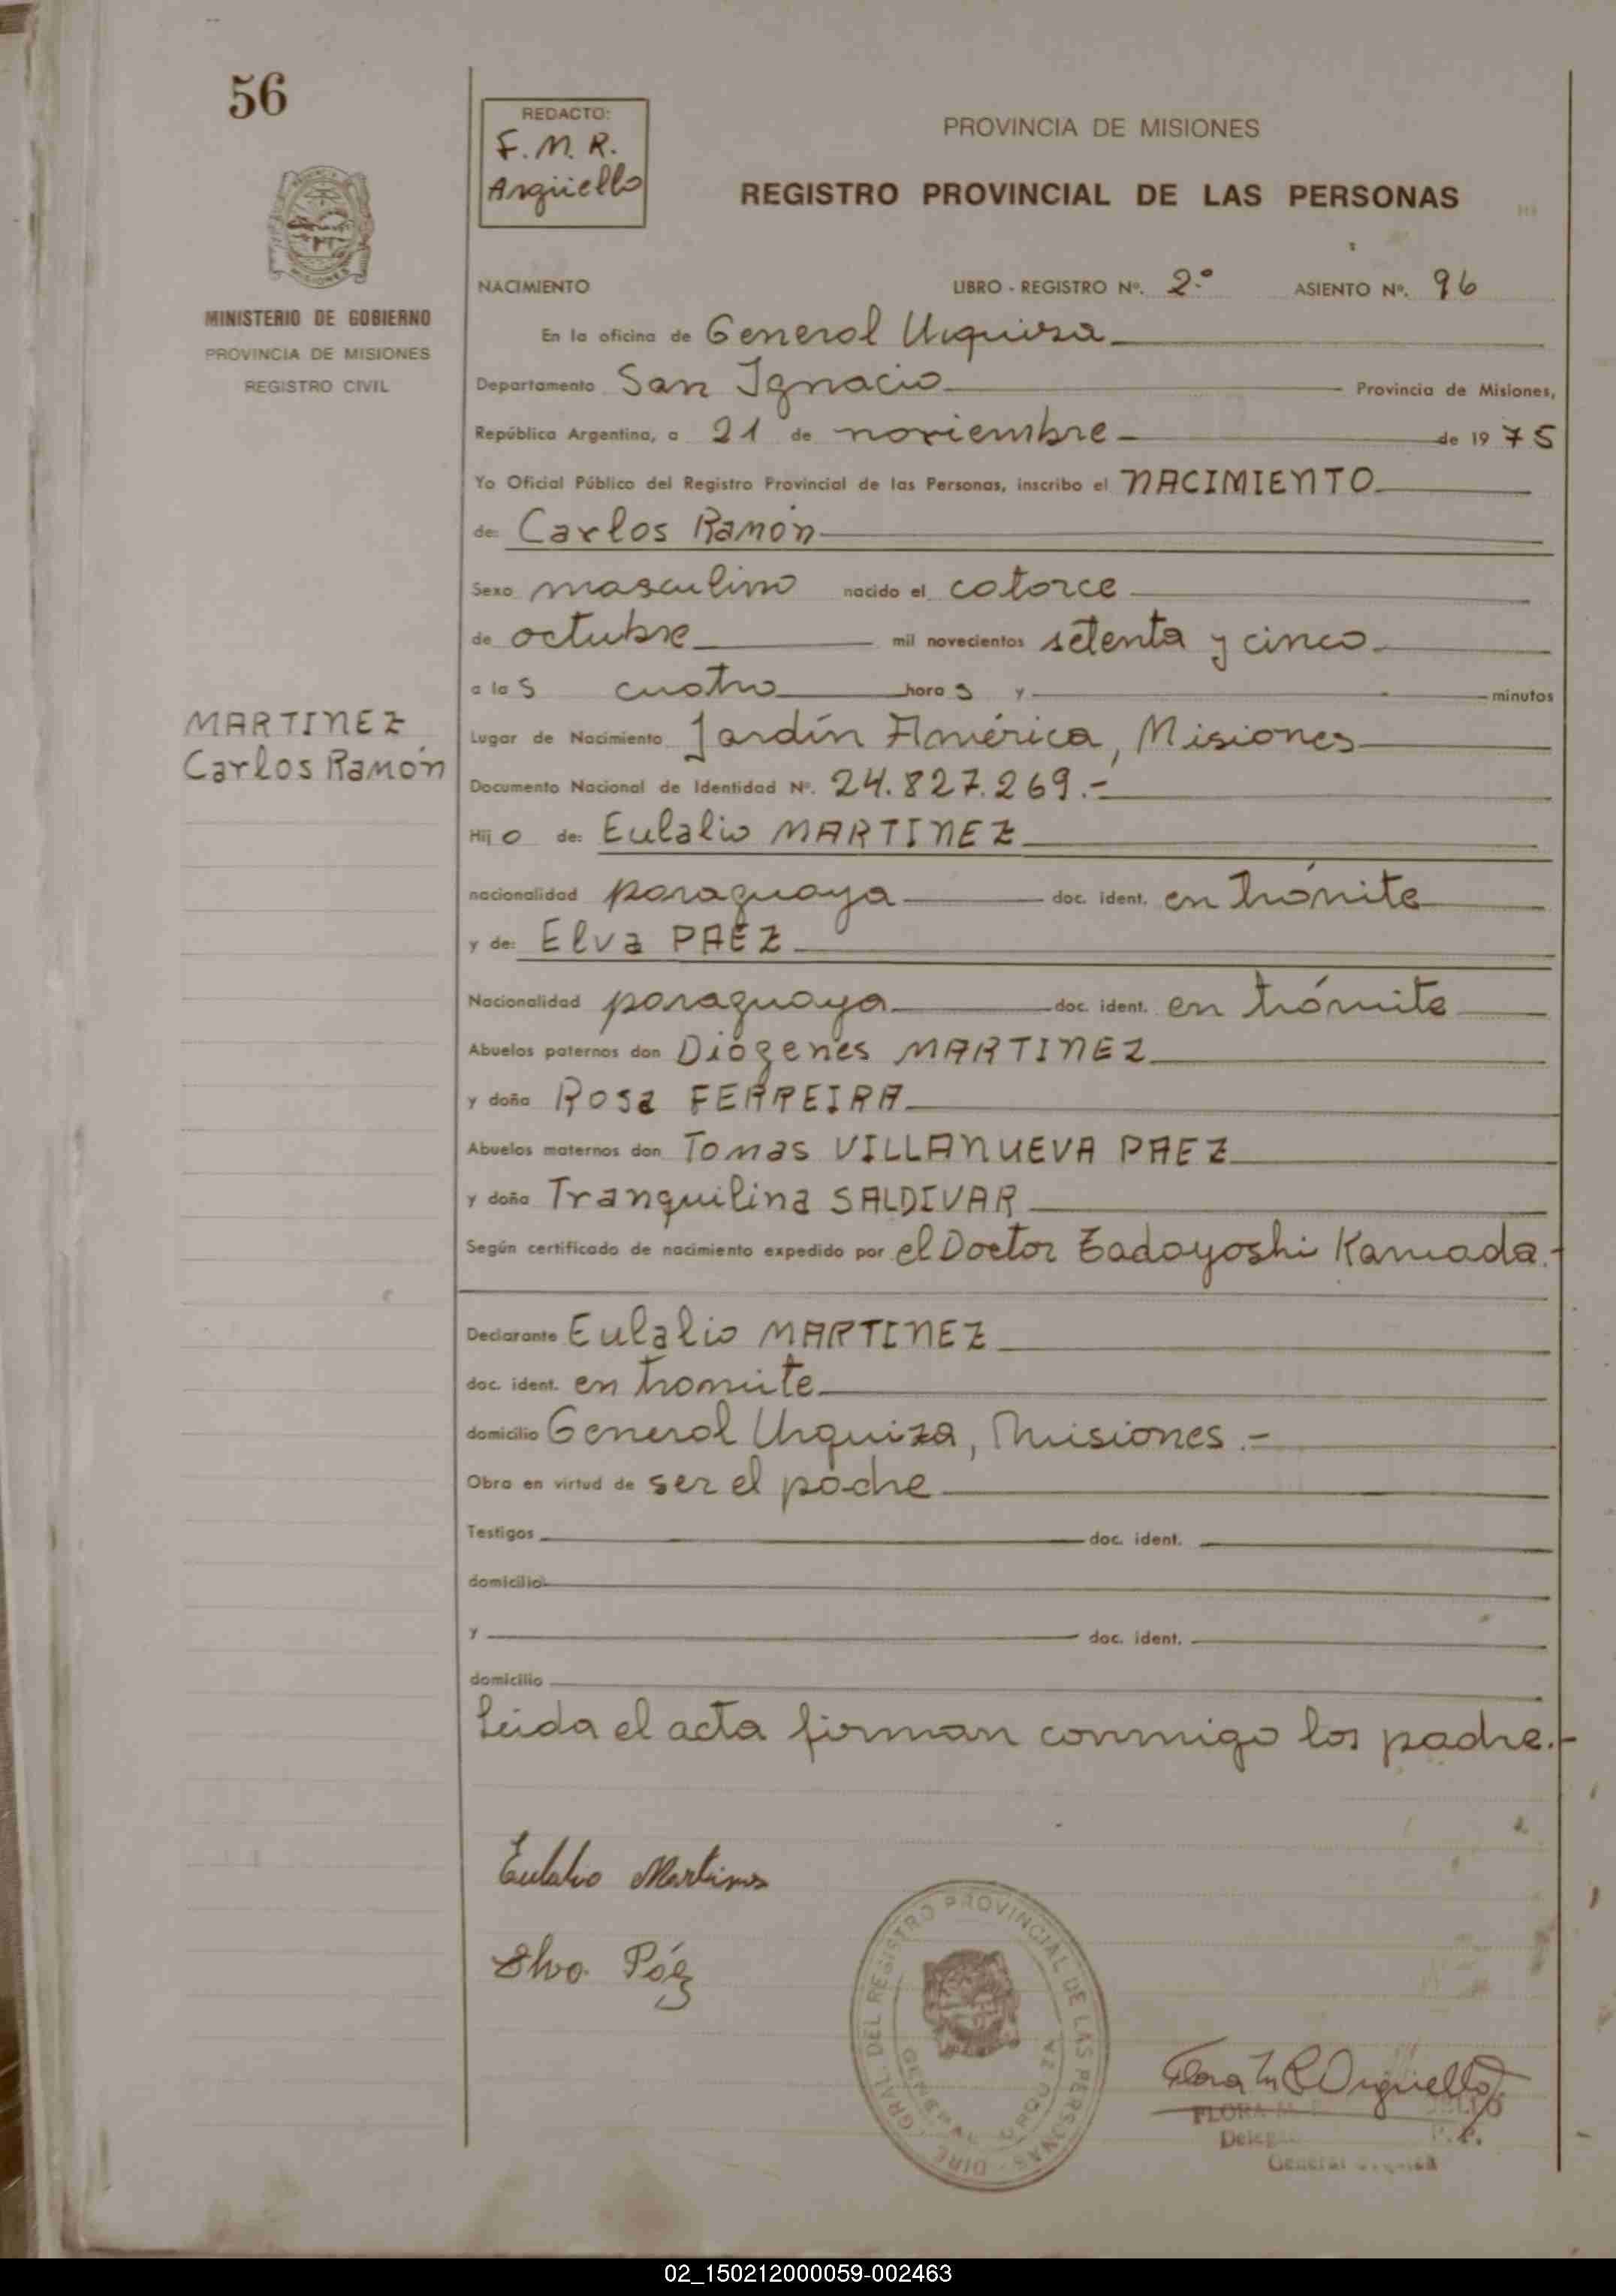 56
REDACTO:
F. M. R.
Argüello
PROVINCIA DE MISIONES
REGISTRO PROVINCIAL DE LAS PERSONAS
MINISTERIO DE GOBIERNO
PROVINCIA DE MISIONES
REGISTRO CIVIL
NACIMIENTO LIBRO - REGISTRO Nº. 2º ASIENTO Nº. 96
En la oficina de General Urquiza
Departamento San Ignacio Provincia de Misiones,
República Argentina, a 21 de noviembre de 19 75
Yo Oficial Público del Registro Provincial de las Personas, inscribo el NACIMIENTO
de: Carlos Ramón
Sexo masculino nacido el catorce
de octubre mil novecientos setenta y cinco
a las cuatro horas y minutos
MARTINEZ
Carlos Ramón
Lugar de Nacimiento Jardín América, Misiones
Documento Nacional de Identidad Nº. 24.827.269.-
Hijo de: Eulalio MARTINEZ
nacionalidad paraguaya doc. ident. en trámite
y de: Elva PAÉZ
Nacionalidad paraguaya doc. ident. en trámite
Abuelos paternos don Diógenes MARTINEZ
y doña Rosa FERREIRA
Abuelos maternos don Tomas VILLANUEVA PAEZ
y doña Tranquilina SALDIVAR
Según certificado de nacimiento expedido por el Doctor Tadayoshi Kamada.-
Declarante Eulalio MARTINEZ
doc. ident. en tramite
domicilio General Urquiza, Misiones.-
Obra en virtud de ser el padre
Testigos doc. ident.
domicilio
y doc. ident.
domicilio
Leida el acta firman conmigo los padre.-
Eulalio Martinez
Elva Páez
DIRE. GRAL. DEL REGISTRO PROVINCIAL DE LAS PERSONAS
GENERAL URQUIZA
Flora M R Argüello
FLORA M.
General
02_150212000059-002463